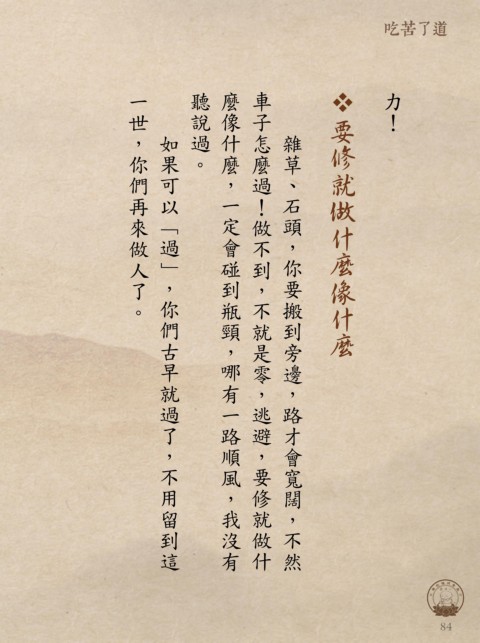 吃苦了道
力！
❖ 要修就做什麼像什麼
雜草、石頭，你要搬到旁邊，路才會寬闊，不然
車子怎麼過！做不到，不就是零，逃避，要修就做什
麼像什麼，一定會碰到瓶頸，哪有一路順風，我沒有
聽說過。
如果可以「過」，你們古早就過了，不用留到這
一世，你們再來做人了。
84